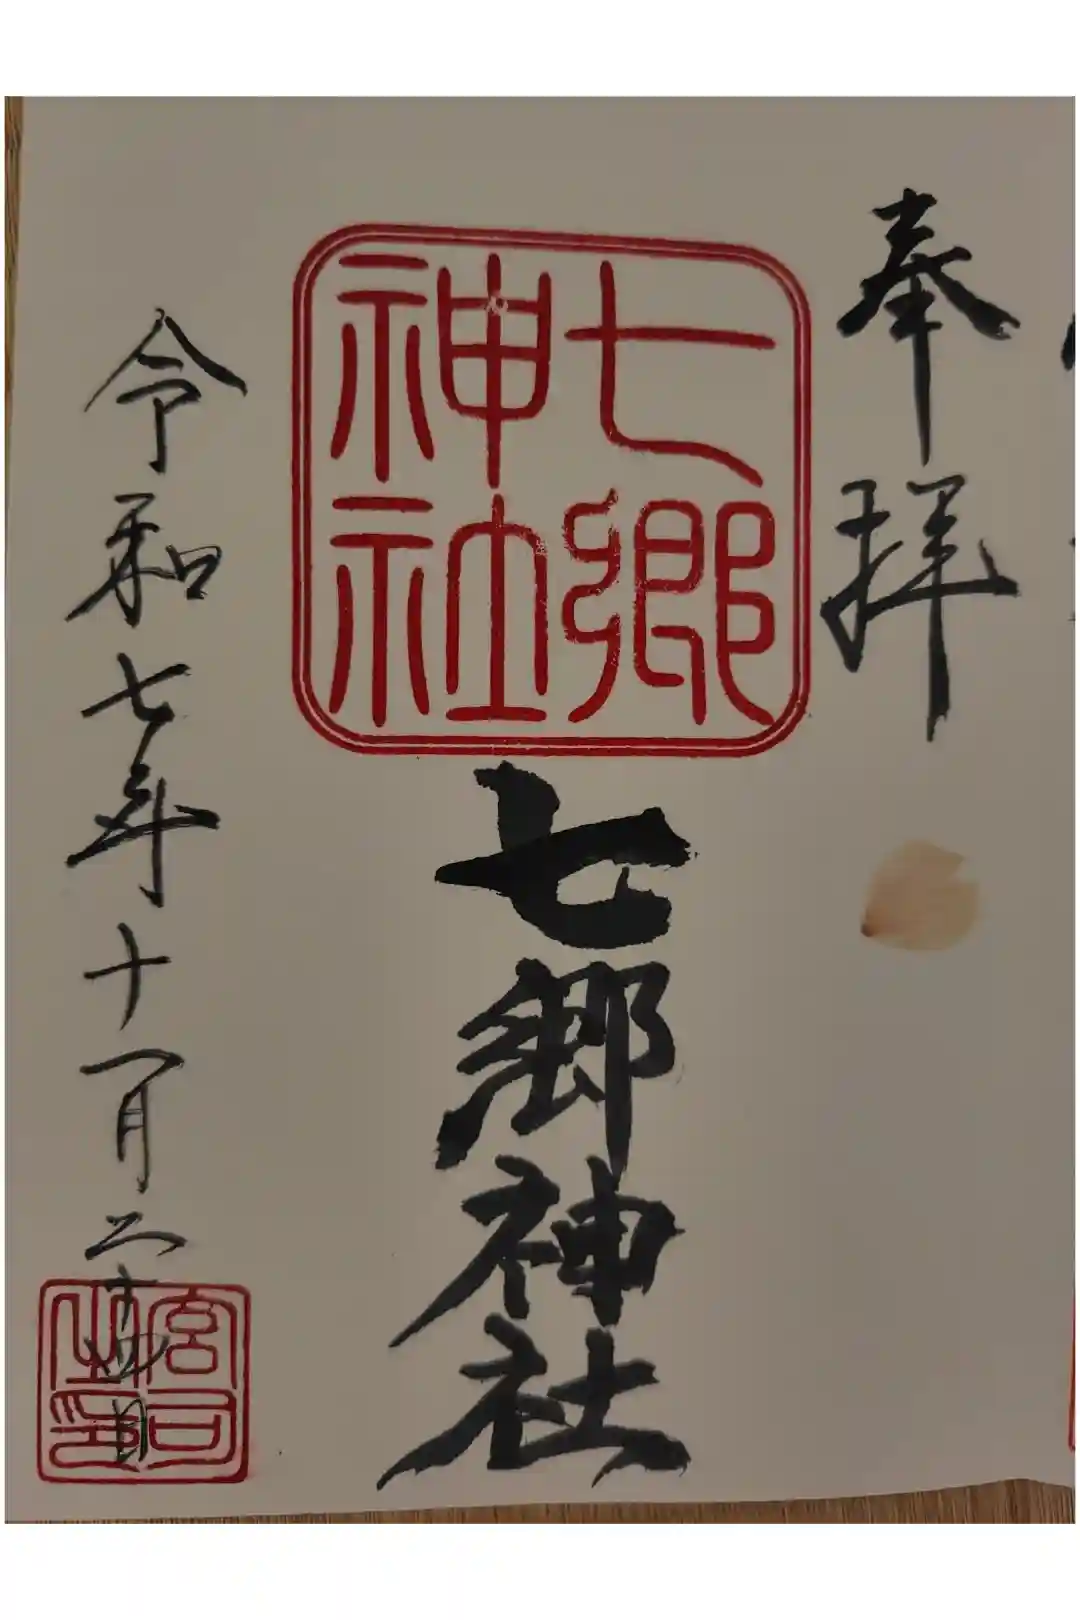 奉拝
七郷
神社
七郷神社
令和七年十一月二十四日
宮司
之印